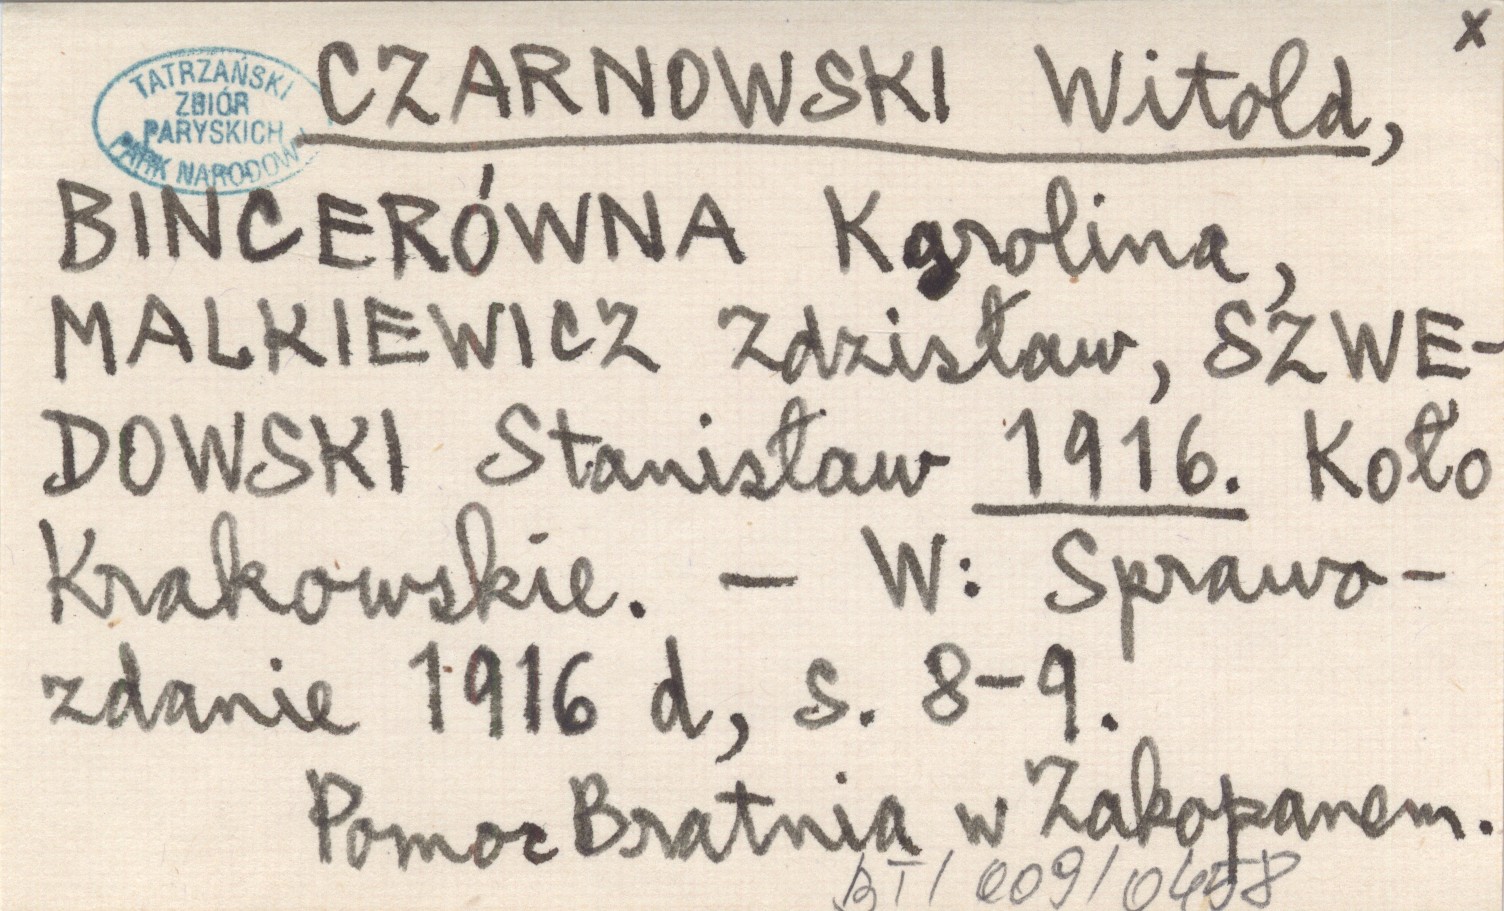 x
TATRZAŃSKI
ZBIÓR
PARYSKICH
PARK NARODOW
CZARNOWSKI Witold,
BINCERÓWNA Karolina,
MALKIEWICZ Zdzisław, SZWE-
DOWSKI Stanisław 1916. Koło
Krakowskie. — W: Sprawo-
zdanie 1916 d, s. 8-9.
Pomoc Bratnia w Zakopanem.
BT/009/0458